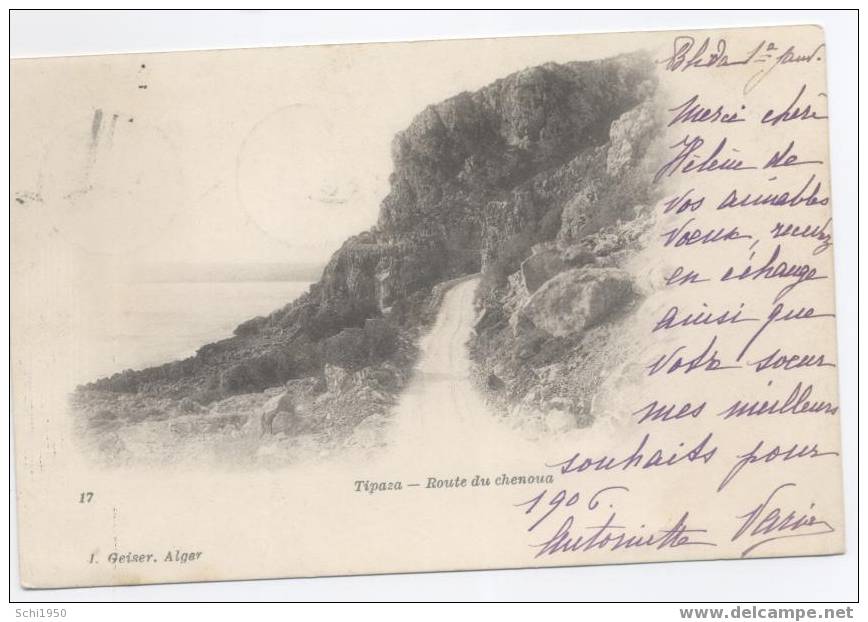 Blida 1er janv.
Merci chère
Hélène de
vos aimables
voeux, recevez
en échange
ainsi que
votre soeur
mes meilleurs
souhaits pour
1906.
Antoinette
Tipaza — Route du chenoua
17
J. Geiser. Alger
Schi1950
www.delcampe.net